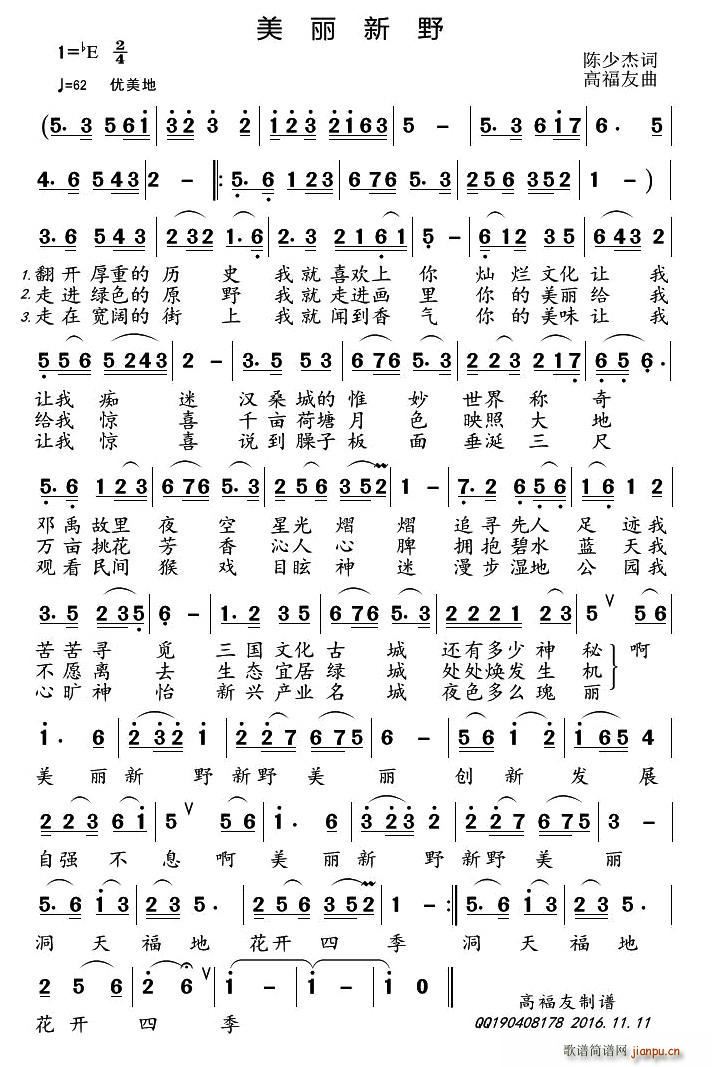 美 丽 新 野
1=♭E 2/4
陈少杰词
♩=62 优美地
高福友曲
(5. 3 5 6 1 | 3 2 3. 2 | 1 2 3 2 1 6 3 | 5 - | 5. 3 6 1 7 | 6. 5
4. 6 5 4 3 | 2 - ‖: 5. 6 1 2 3 | 6 7 6 5. 3 | 2 5 6 3 5 2 | 1 - )
3. 6 5 4 3 | 2 3 2 1. 6 | 2. 3 2 1 6 1 | 5 - | 6 1 2 3 5 | 6 4 3 2
1. 翻开厚重的 历 史 我就喜欢上 你 灿烂文化让 我
2. 走进绿色的 原 野 我就走进画 里 你的美丽给 我
3. 走在宽阔的 街 上 我就闻到香 气 你的美味让 我
5 5 6 5 2 4 3 | 2 - | 3. 5 5 3 5 | 6 7 6 5. 3 | 2 2 3 2 1 7 | 6 5 6.
让我 痴 迷 汉桑城的 惟 妙 世界 称 奇
给我 惊 喜 千亩荷塘 月 色 映照 大 地
让我 惊 喜 说到臊子 板 面 垂涎 三 尺
5. 6 1 2 3 | 6 7 6 5. 3 | 2 5 6 3 5 2 | 1 - | 7. 2 6 5 6 | 1 6 1 2
邓禹故里 夜 空 星光 熠 熠 追寻先人 足 迹我
万亩桃花 芳 香 沁人 心 脾 拥抱碧水 蓝 天我
观看民间 猴 戏 目眩 神 迷 漫步湿地 公 园我
3. 5 2 3 5 | 6 - | 1. 2 3 5 | 6 7 6 5. 3 | 2 2 2 1 2 3 | 5 5 6
苦苦寻 觅 三国文化 古 城 还有多少 神 秘 啊
不愿离 去 生态宜居 绿 城 处处焕发 生 机
心旷神 怡 新兴产业 名 城 夜色多么 瑰 丽
1. 6 | 2 3 2 1 | 2 2 7 6 7 5 | 6 - | 5 6 1 2 | 1 6 5 4
美 丽 新 野 新野 美 丽 创 新 发 展
2 2 3 6 1 | 5 5 6 | 1. 6 | 3 2 3 2 | 2 2 7 6 7 5 | 3 -
自强 不 息 啊 美 丽 新 野 新野 美 丽
5. 6 1 3 | 2 3 5. | 2 5 6 3 5 2 | 1 - :‖ 5. 6 1 3 | 2 3 5.
洞 天 福 地 花开 四 季 洞 天 福 地
2 5 6 | 2 6 | 1 - | 1 - | 1 0 ‖
花 开 四 季
高福友制谱
QQ190408178 2016.11.11
歌谱简谱网
jianpu.cn